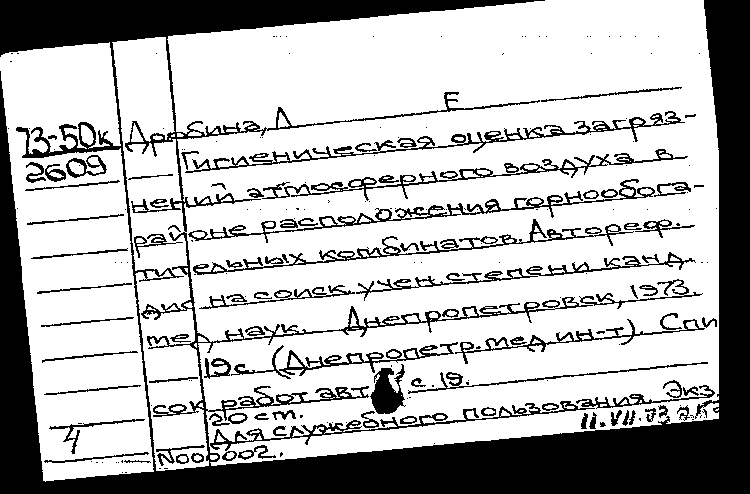 73-50к Дробина, Л Е
2609 Гигиеническая оценка загряз-
нений атмосферного воздуха в
районе расположения горнообога-
тительных комбинатов. Автореф.
дис на соиск. учен. степени канд.
мед наук. Днепропетровск, 1973.
19с. (Днепропетр. мед ин-т). Спи
сок работ авт с. 19.
20 ст.
4 Для служебного пользования. Экз.
N000002. 11.VII.73